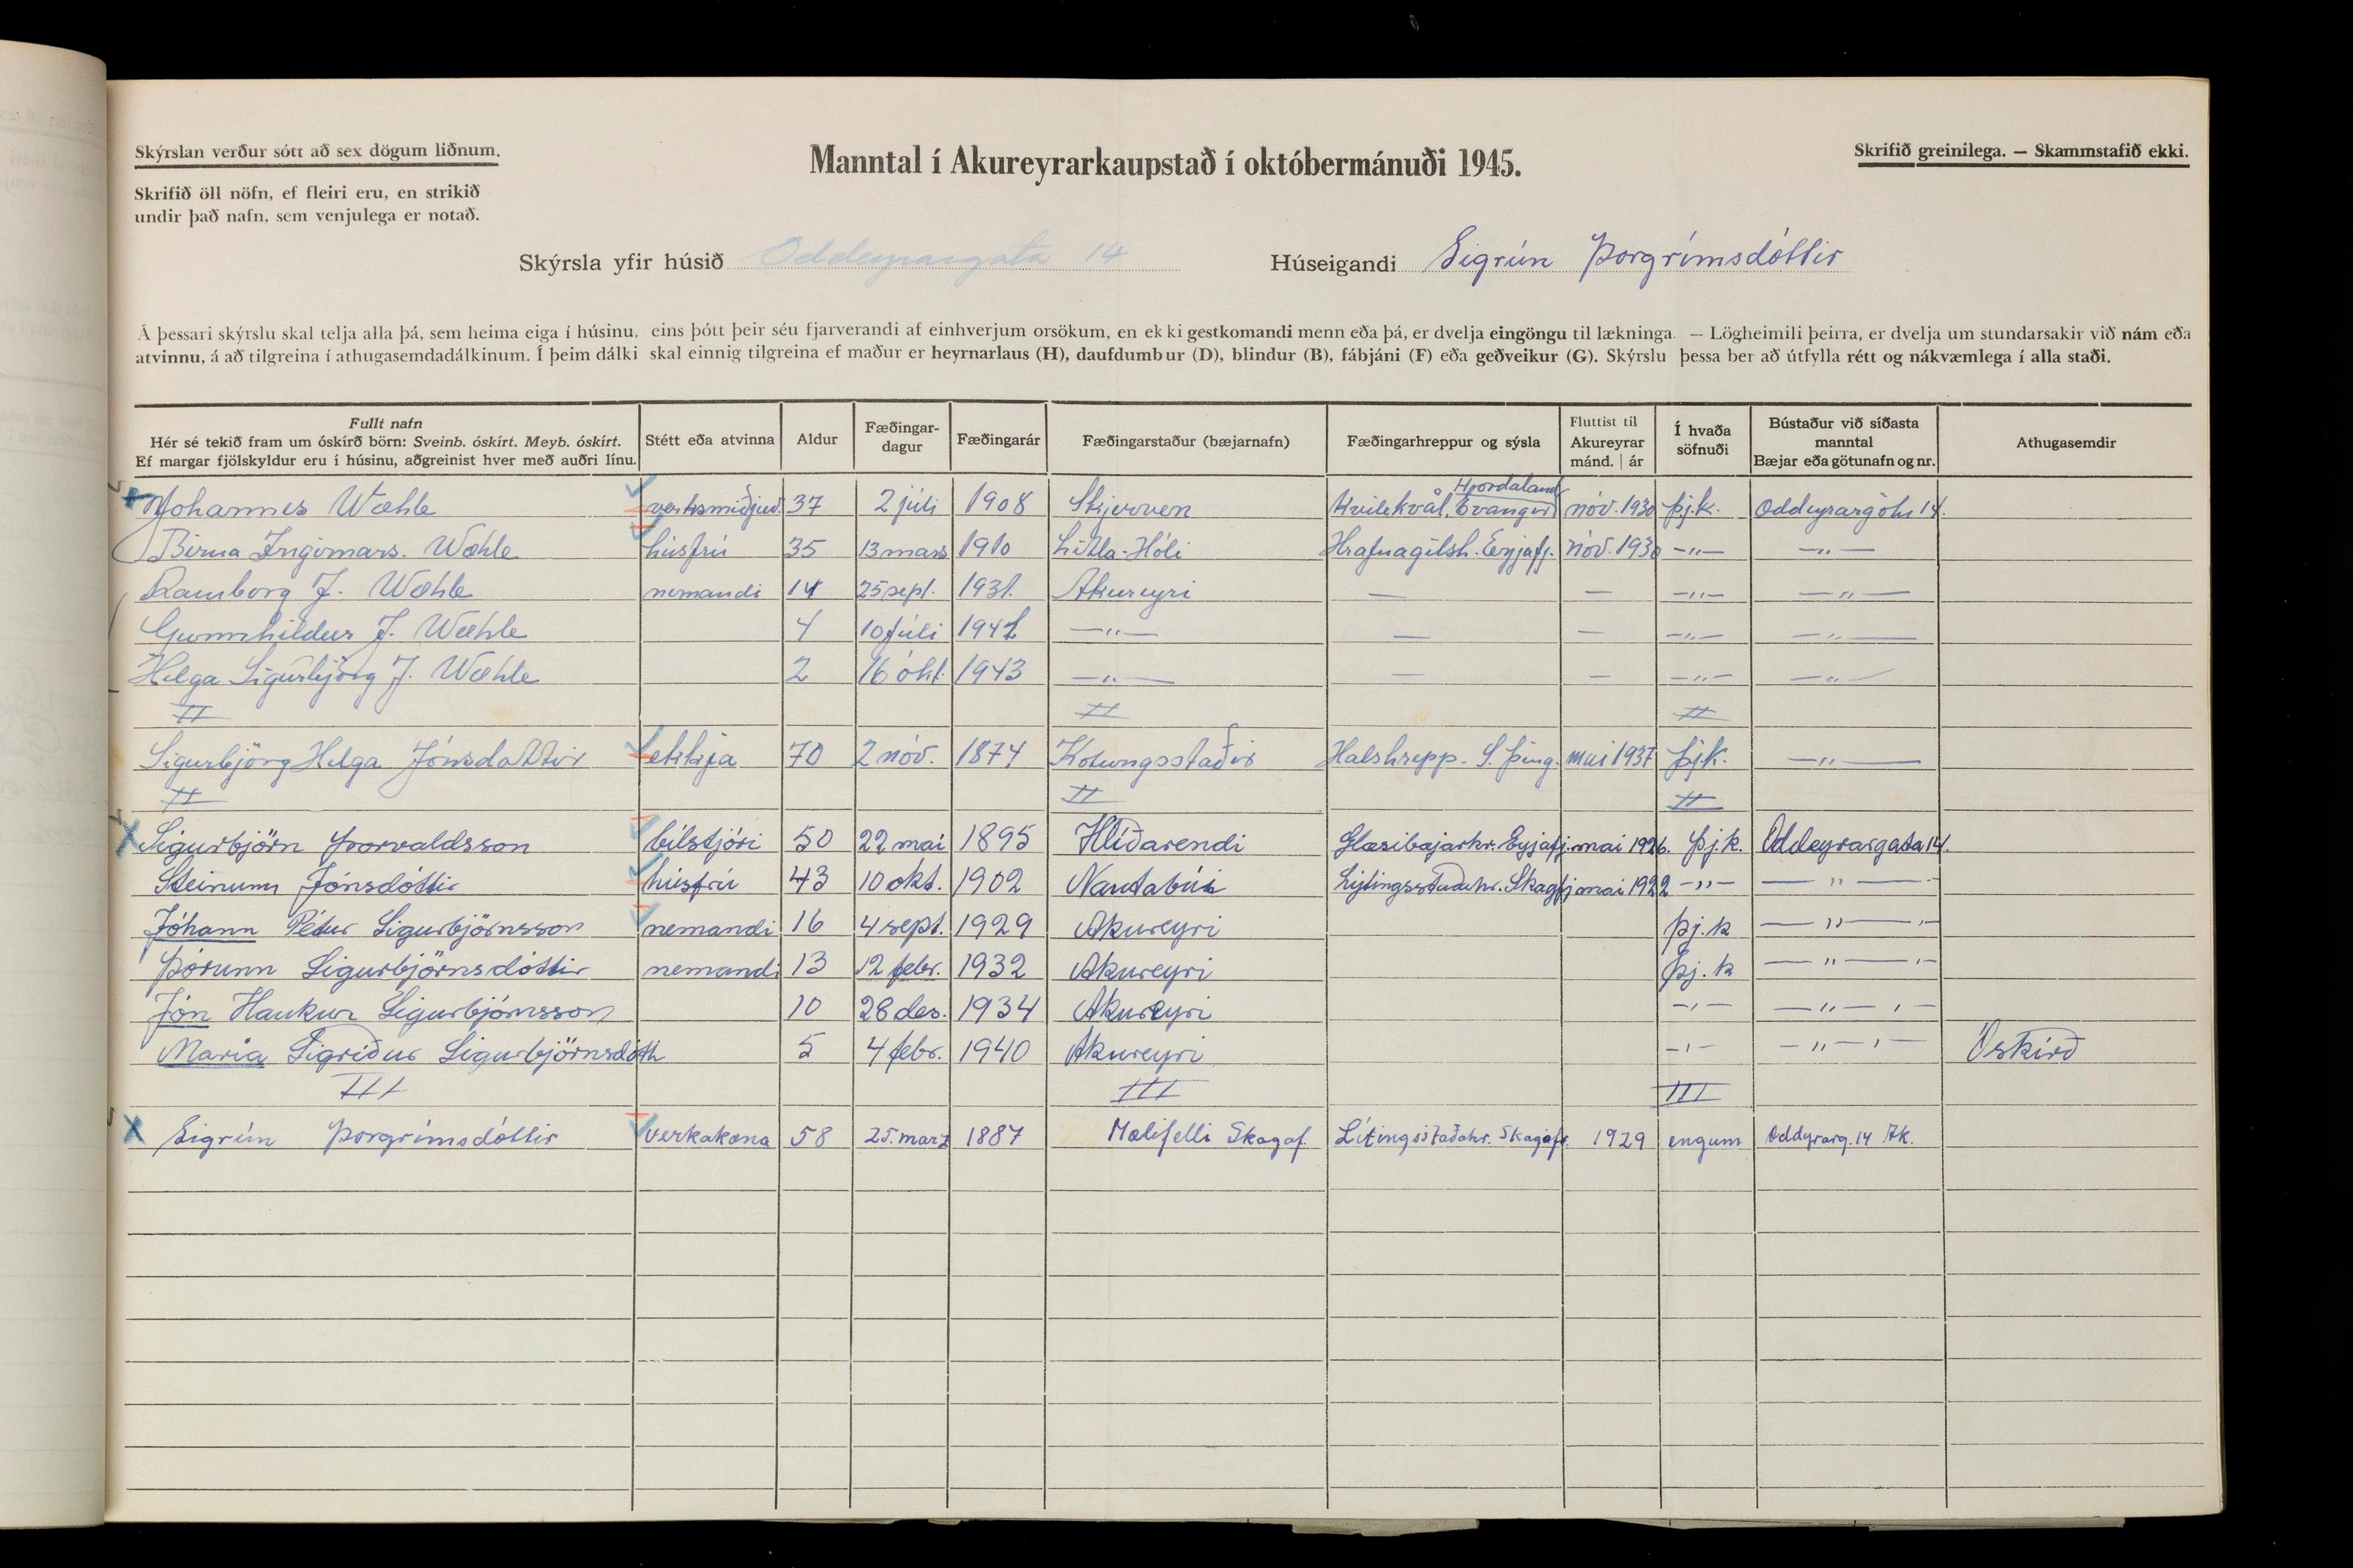 Skýrslan verður sótt að sex dögum liðnum.
Skrifið öll nöfn, ef fleiri eru, en strikið
undir það nafn, sem venjulega er notað.
Manntal í Akureyrarkaupstað í októbermánuði 1945.
Skrifið greinilega. — Skammstafið ekki.
Skýrsla yfir húsið Oddeyrargata 14 Húseigandi Sigrún Þorgrímsdóttir
Á þessari skýrslu skal telja alla þá, sem heima eiga í húsinu, eins þótt þeir séu fjarverandi af einhverjum orsökum, en ekki gestkomandi menn eða þá, er dvelja eingöngu til lækninga. — Lögheimili þeirra, er dvelja um stundarsakir við nám eða
atvinnu, á að tilgreina í athugasemdadálkinum. Í þeim dálki skal einnig tilgreina ef maður er heyrnarlaus (H), daufdumbur (D), blindur (B), fábjáni (F) eða geðveikur (G). Skýrslu þessa ber að útfylla rétt og nákvæmlega í alla staði.
Fullt nafn
Hér sé tekið fram um óskírð börn: Sveinb. óskírt. Meyb. óskírt.
Ef margar fjölskyldur eru í húsinu, aðgreinist hver með auðri línu.
Stétt eða atvinna
Aldur
Fæðingar-
dagur
Fæðingarár
Fæðingarstaður (bæjarnafn)
Fæðingarhreppur og sýsla
Fluttist til
Akureyrar
mánd. | ár
Í hvaða
söfnuði
Bústaður við síðasta
manntal
Bæjar eða götunafn og nr.
Athugasemdir
Hordaland
Johannes Wæhle verksmiðjud. 37 2 júli 1908 Skjerven Kvilekvål, Evanger nóv. 1930 þj.k. Oddeyrargötu 14.
Birna Ingimars. Wæhle húsfrú 35 13 mars 1910 Litla-Hóli Hrafnagilsh. Eyjafj. nóv. 1930 -"- -"-
Ramborg J. Wæhle nemandi 14 25 sept. 1931. Akureyri — — -"- -"-
Gunnhildur J. Wæhle 4 10 júli 1941 -"- — — -"- -"-
Helga Sigurbjörg J. Wæhle 2 16 okt. 1943 -"- — — -"- -"-
II II II
Sigurbjörg Helga Jónsdóttir ekkja 70 2 nóv. 1874 Kotungsstaðir Halshrepp. S. Þing. mai 1937 þj.k. -"-
II II II
Sigurbjörn Þorvaldsson bílstjóri 50 22 mai 1895 Hlíðarendi Glæsibæjarhr. Eyjafj. mai 1926. Þj.k. Oddeyrargata 14.
Steinunn Jónsdóttir húsfrú 43 10 okt. 1902 Nautabúi Lýtingsstaðahr. Skagfj mai 1922 -"- -"-
Jóhann Pétur Sigurbjörnsson nemandi 16 4 sept. 1929 Akureyri þj.k -"-
Þórunn Sigurbjörnsdóttir nemandi 13 12 febr. 1932 Akureyri Þj.k -"-
Jón Haukur Sigurbjörnsson 10 28 des. 1934 Akureyri -"- -"-
María Sigríður Sigurbjörnsdótt 5 4 febr. 1940 Akureyri -"- -"- Óskírð
III III III
Sigrún Þorgrímsdóttir verkakona 58 25. marz 1887 Mælifelli Skagaf. Lítingsstaðahr. Skagafr. 1929 engum Oddyrarg. 14 Ak.